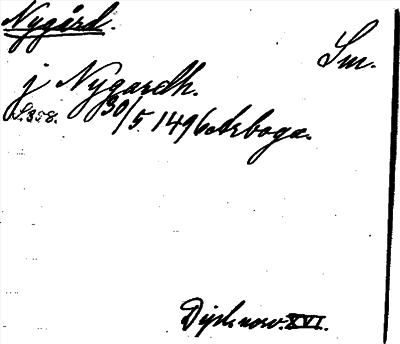 Nygård.
Sm.
j Nygardh.
S. 328. 30/5 1496 Arboga.
Dipl. norv. XVI.